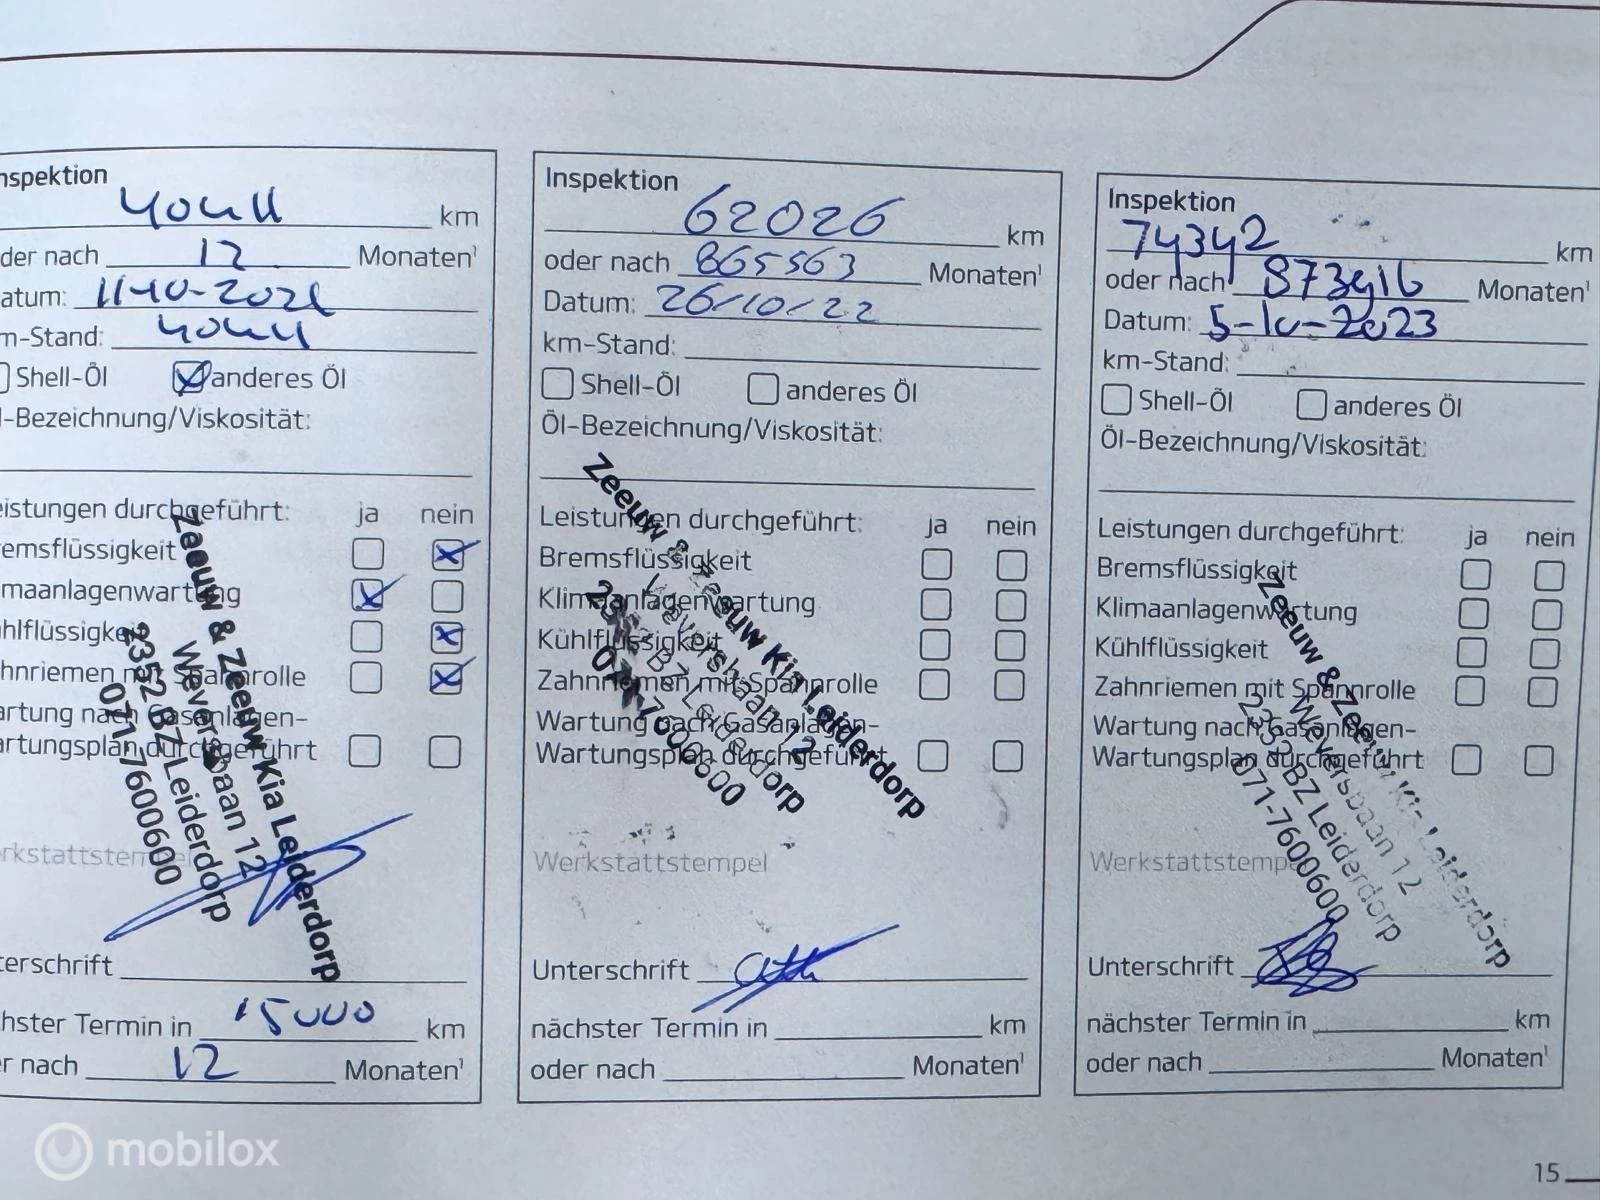 nspektion
km
der nach 12 Monaten¹
atum: 11-10-2021
m-Stand:
Shell-Öl anderes Öl
l-Bezeichnung/Viskosität:
eistungen durchgeführt: ja nein
remsflüssigkeit
maanlagenwartung
hlflüssigkeit
hnriemen mit Spannrolle
artung nach Gasanlagen-
artungsplan durchgeführt
Zeeuw & Zeeuw Kia Leiderdorp
Weversbaan 12
2352 BZ Leiderdorp
071-7600600
rkstattstempel
terschrift
hster Termin in 15000 km
r nach 12 Monaten¹
Inspektion
62026 km
oder nach 865563 Monaten¹
Datum: 26/10/22
km-Stand:
Shell-Öl anderes Öl
Öl-Bezeichnung/Viskosität:
Leistungen durchgeführt: ja nein
Bremsflüssigkeit
Klimaanlagenwartung
Kühlflüssigkeit
Zahnriemen mit Spannrolle
Wartung nach Gasanlagen-
Wartungsplan durchgeführt
Zeeuw & Zeeuw Kia Leiderdorp
Weversbaan 12
2352 BZ Leiderdorp
071-7600600
Werkstattstempel
Unterschrift
nächster Termin in km
oder nach Monaten¹
Inspektion
74342 km
oder nach 873916 Monaten¹
Datum: 5-10-2023
km-Stand:
Shell-Öl anderes Öl
Öl-Bezeichnung/Viskosität:
Leistungen durchgeführt: ja nein
Bremsflüssigkeit
Klimaanlagenwartung
Kühlflüssigkeit
Zahnriemen mit Spannrolle
Wartung nach Gasanlagen-
Wartungsplan durchgeführt
Zeeuw & Zeeuw Kia Leiderdorp
Weversbaan 12
2352 BZ Leiderdorp
071-7600600
Werkstattstempel
Unterschrift
nächster Termin in km
oder nach Monaten¹
mobilox
15